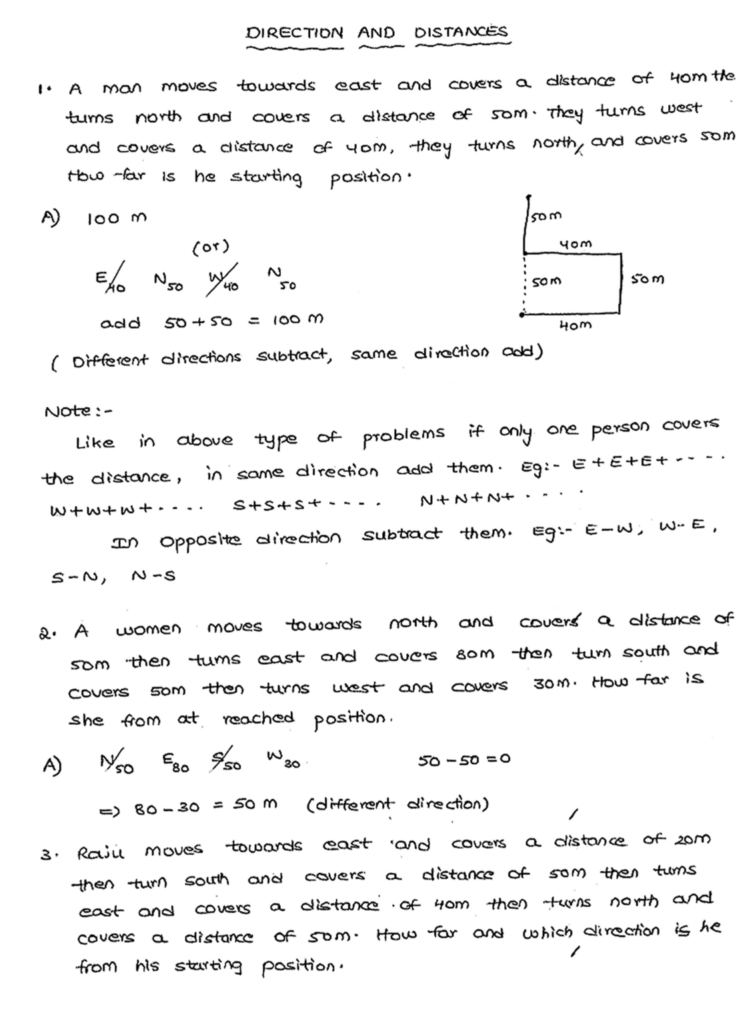 DIRECTION AND DISTANCES
1. A man moves towards east and covers a distance of 40m the
turns north and covers a distance of 50m. They turns west
and covers a distance of 40m, they turns north, and covers 50m
How far is he starting position.
A) 100 m
(or)
E/40 N50 W/40 N50
add 50+50 = 100 m
50m
40m
50m
50m
40m
( Different directions subtract, same direction add)
Note:-
Like in above type of problems if only one person covers
the distance, in same direction add them. Eg:- E+E+E+----.
W+W+W+.... S+S+S+----. N+N+N+ ....
In opposite direction subtract them. Eg:- E-W, W-E,
S-N, N-S
2. A women moves towards north and covers a distance of
50m then turns east and covers 80m then turn south and
covers 50m then turns west and covers 30m. How far is
she from at reached position.
A) N/50 E80 S/50 W30. 50-50=0
=> 80-30 = 50 m (different direction)
3. Raju moves towards east and covers a distance of 20m
then turn south and covers a distance of 50m then turns
east and covers a distance of 40m then turns north and
covers a distance of 50m. How far and which direction is he
from his starting position.